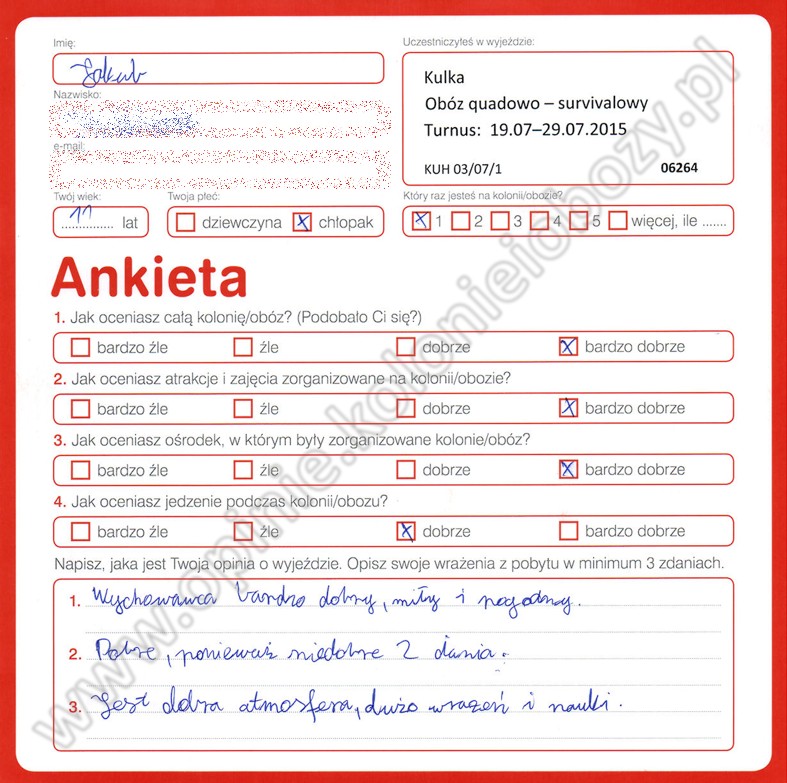 Imię:
Jakub
Uczestniczyłeś w wyjeździe:
Kulka
Obóz quadowo – survivalowy
Turnus: 19.07–29.07.2015
KUH 03/07/1 06264
Nazwisko:
e-mail:
Twój wiek:
11 lat
Twoja płeć:
dziewczyna chłopak
Który raz jesteś na kolonii/obozie?
1 2 3 4 5 więcej, ile .......
Ankieta
1. Jak oceniasz całą kolonię/obóz? (Podobało Ci się?)
bardzo źle źle dobrze bardzo dobrze
2. Jak oceniasz atrakcje i zajęcia zorganizowane na kolonii/obozie?
bardzo źle źle dobrze bardzo dobrze
3. Jak oceniasz ośrodek, w którym były zorganizowane kolonie/obóz?
bardzo źle źle dobrze bardzo dobrze
4. Jak oceniasz jedzenie podczas kolonii/obozu?
bardzo źle źle dobrze bardzo dobrze
Napisz, jaka jest Twoja opinia o wyjeździe. Opisz swoje wrażenia z pobytu w minimum 3 zdaniach.
1. Wychowawca bardzo dobry, miły i pogodny.
2. Dobre, ponieważ niedobre 2 dania.
3. Jest dobra atmosfera, dużo wrażeń i nauki.
www.opinie.kolonieiobozy.pl